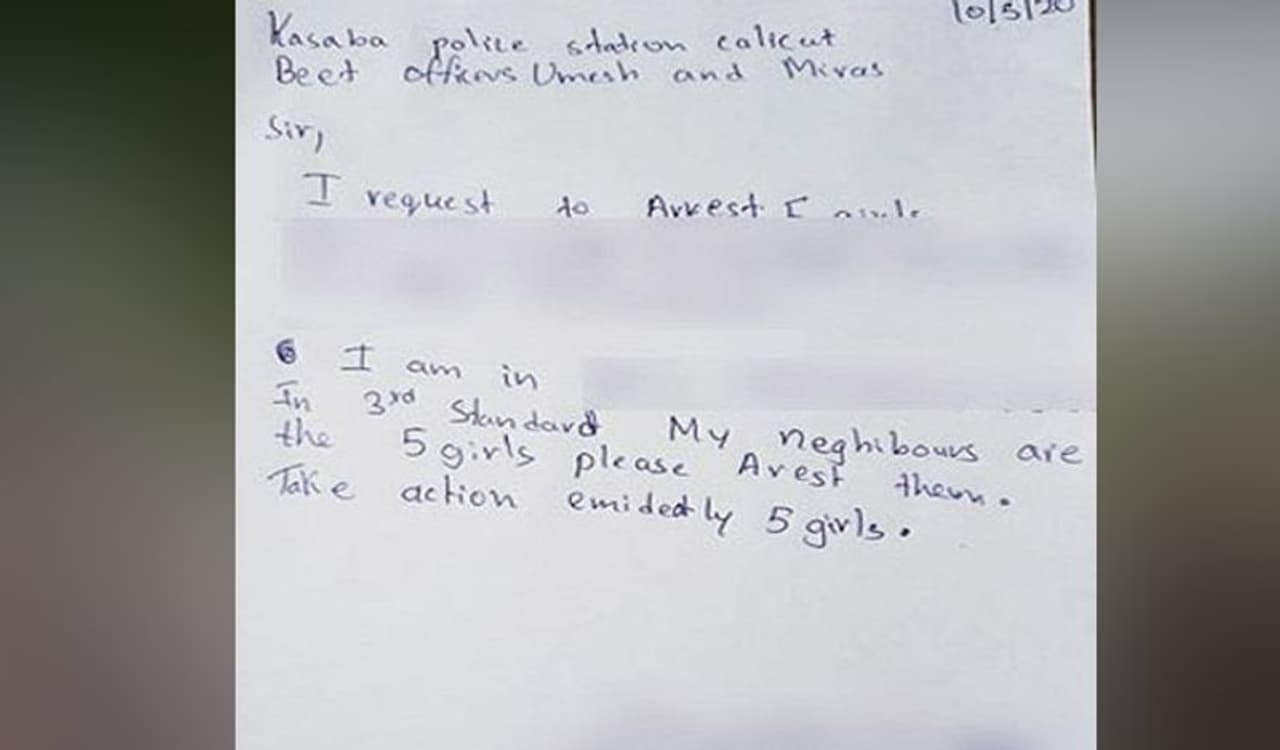 10/5/20
Kasaba police station calicut
Beet officers Umesh and Miras
Sir,
I request to Arrest 5 girls
I am in
In 3rd Standard My neghibours are
the 5 girls please Arest them.
Take action emidedtly 5 girls.